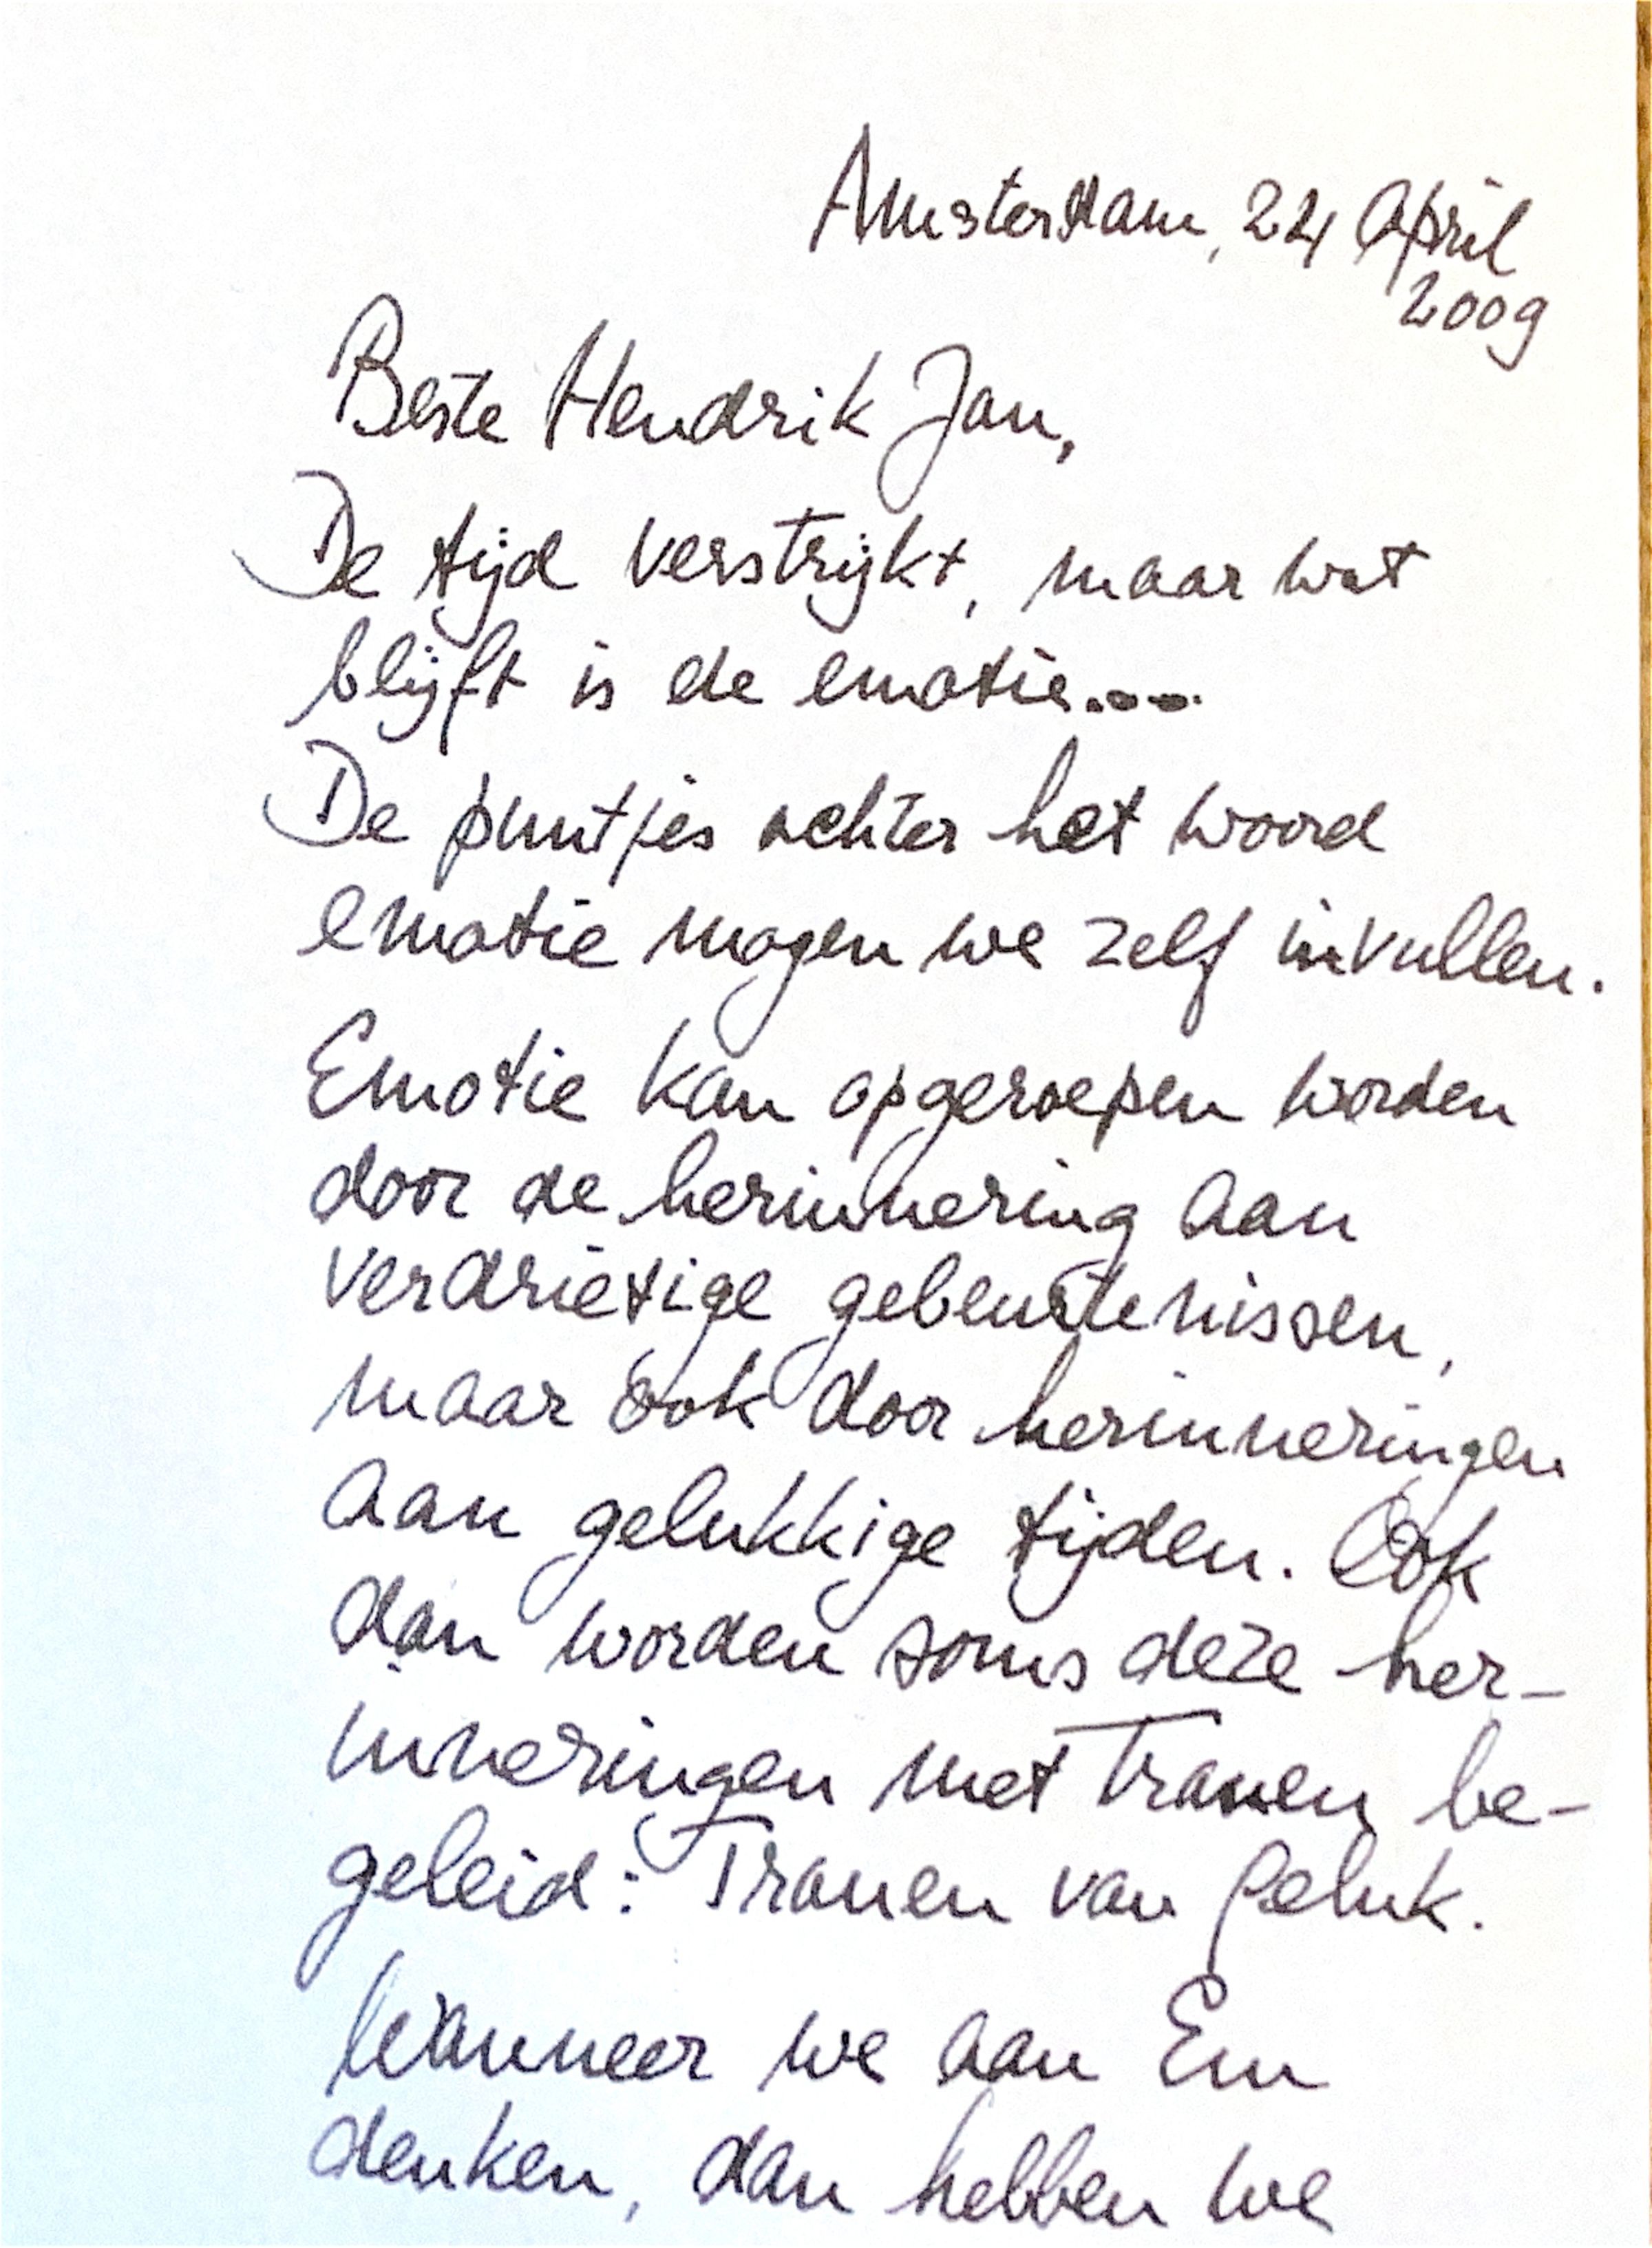 Amsterdam, 24 April
2009
Beste Hendrik Jan,
De tijd verstrijkt, maar wat
blijft is de emotie....
De puntjes achter het woord
emotie mogen we zelf invullen.
Emotie kan opgeroepen worden
door de herinnering aan
verdrietige gebeurtenissen,
maar ook door herinneringen
aan gelukkige tijden. Ook
dan worden soms deze her-
inneringen met tranen be-
geleid: Tranen van geluk.
Wanneer we aan Em
denken, dan hebben we